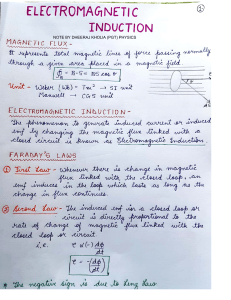 ELECTROMAGNETIC
INDUCTION
NOTE BY DHEERAJ KHOLIA (PGT) PHYSICS
MAGNETIC FLUX -
It represents total magnetic lines of force passing normally
through a given area placed in a magnetic field
Φ = B·S = BS cos θ
Unit - Weber (Wb) = Tm² → SI unit
Maxwell → CGS unit
ELECTROMAGNETIC INDUCTION -
The phenomenon to generate induced current or induced
emf by changing the magnetic flux linked with a
closed circuit is known as Electromagnetic Induction
FARADAY'S LAWS
① First Law - Whenever there is change in magnetic
flux linked with the closed loop, an
emf induces in the loop which lasts as long as the
change in flux continues
② Second Law - The induced emf in a closed loop or
circuit is directly proportional to the
rate of change of magnetic flux linked with the
closed loop or circuit
i.e. e ∝ (-) dΦ/dt
e = - dΦ/dt
* The negative sign is due to Lenz Law